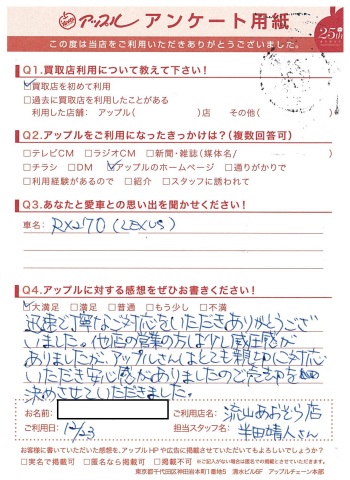 アップル アンケート用紙
25th
この度は当店をご利用いただきありがとうございました。
Q1.買取店利用について教えて下さい!
☑買取店を初めて利用
□過去に買取店を利用したことがある
利用した店舗: アップル( )店 その他( )
Q2.アップルをご利用になったきっかけは?(複数回答可)
□テレビCM □ラジオCM □新聞・雑誌(媒体名/ )
□チラシ □DM ☑アップルのホームページ □通りがかりで
□利用経験があるので □紹介 □スタッフに誘われて
Q3.あなたと愛車との思い出を聞かせください!
車名: RX270(LEXUS)
Q4.アップルに対する感想をぜひお書きください!
☑大満足 □満足 □普通 □もう少し □不満
迅速で丁寧なご対応をいただきありがとうござ
いました。他店の営業の方は少し威圧感が
ありましたが、アップルさんはとても親切に対応
いただき安心感がありましたので売却を
決めさせていただきました。
お名前: ご利用店名: 流山あおぞら店
ご利用日: 12/23 担当スタッフ名: 半田靖人さん
お客様に書いていただいた感想を、アップルHPや広告に掲載させていただいてもよろしいでしょうか?
□実名で掲載可 □匿名なら掲載可 □掲載不可 ※ご記入がない場合は匿名での掲載とさせていただきます。
東京都千代田区神田岩本町1番地5 清水ビル6F アップルチェーン本部